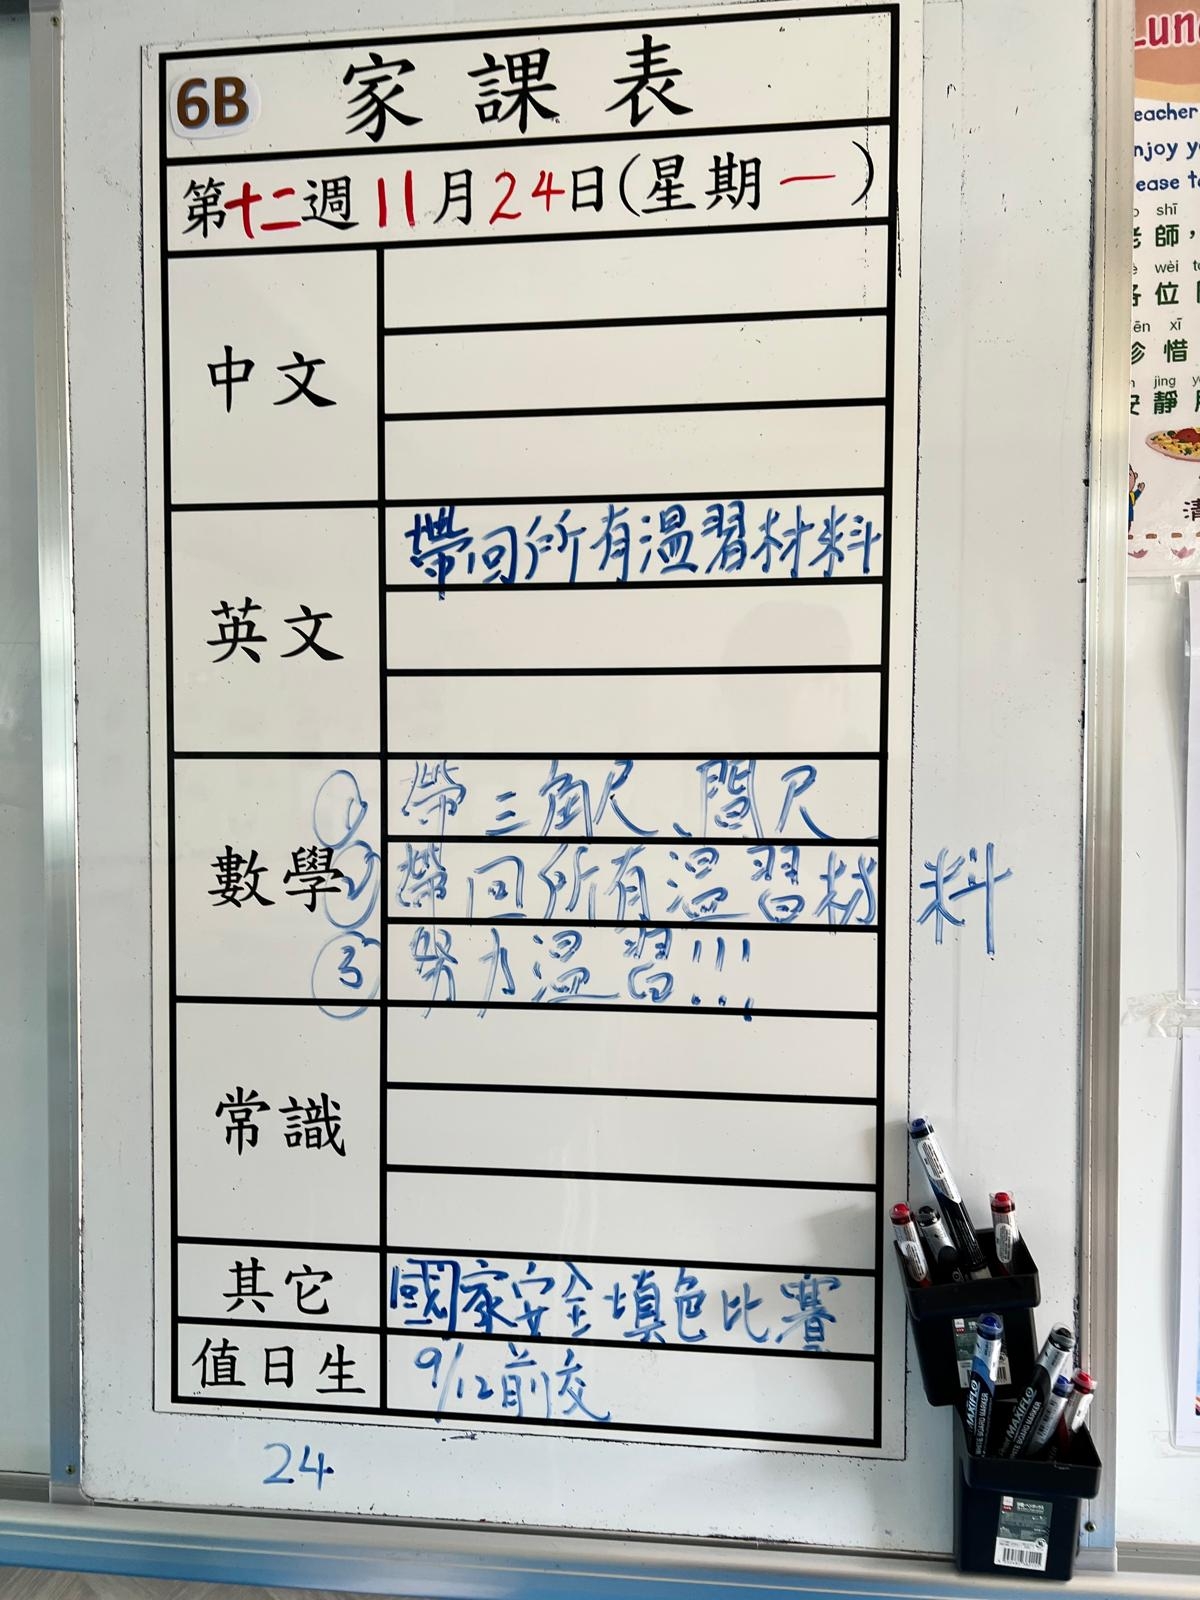 6B 家課表
第十二週 11月24日(星期一)
中文
英文
帶回所有溫習材料
數學
① 帶三角尺、間尺
② 帶回所有溫習材料
③ 努力溫習!!!
常識
其它
國家安全填色比賽
值日生
9/12前交
24
Lun
eacher
njoy y
ease t
shī
老師,
wèi
各位
ēn xī
珍惜
jìng
安靜
清
MAXIFLO
MAXIFLO